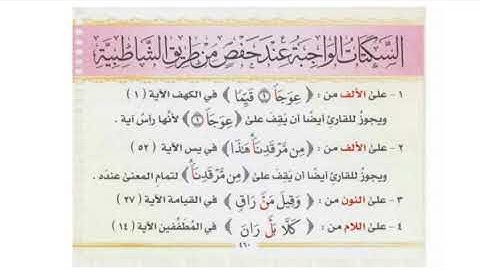 السَّكتَاتُ الوَاجِبَةُ عِنْدَ حَفْصٍ مِنْ طَرِيقِ الشَّاطِبِيَّةِ
١ - على الألف من : ﴿ عِوَجَاۜ ١ قَيِّمًا ﴾ في الكهف الآية (١)
ويجوزُ للقارئ أيضًا أن يَقِفَ على ﴿ عِوَجَاۜ ١ ﴾ لأنها رأسُ آية .
٢ - على الألف من : ﴿ مِن مَّرْقَدِنَاۜ هَٰذَا ﴾ في يس الآية (٥٢)
ويجوز للقارئ أيضاً أن يَقِفَ على ﴿ مِن مَّرْقَدِنَاۜ ﴾ لتمام المعنى عنده .
٣ - على النون من : ﴿ وَقِيلَ مَنْۜ رَاقٍ ﴾ في القيامة الآية (٢٧)
٤ - على اللام من : ﴿ كَلَّا بَلْۜ رَانَ ﴾ في المُطَفِّفين الآية (١٤)
٤٦٠